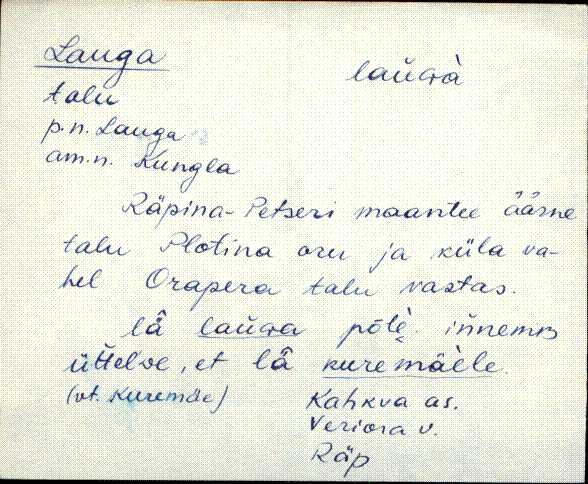 Lauga
laŭɢà
talu
p.n. Lauga
am.n. Kungla
Räpina-Petseri maantee äärne
talu Plotina oru ja küla va-
hel Orapera talu vastas.
lǟ laŭɢa põlè. iňnemʙ
üťťelve, et lǟ kuremäèle.
(vt. Kuremäe)
Kahkva as.
Veriora v.
Räp